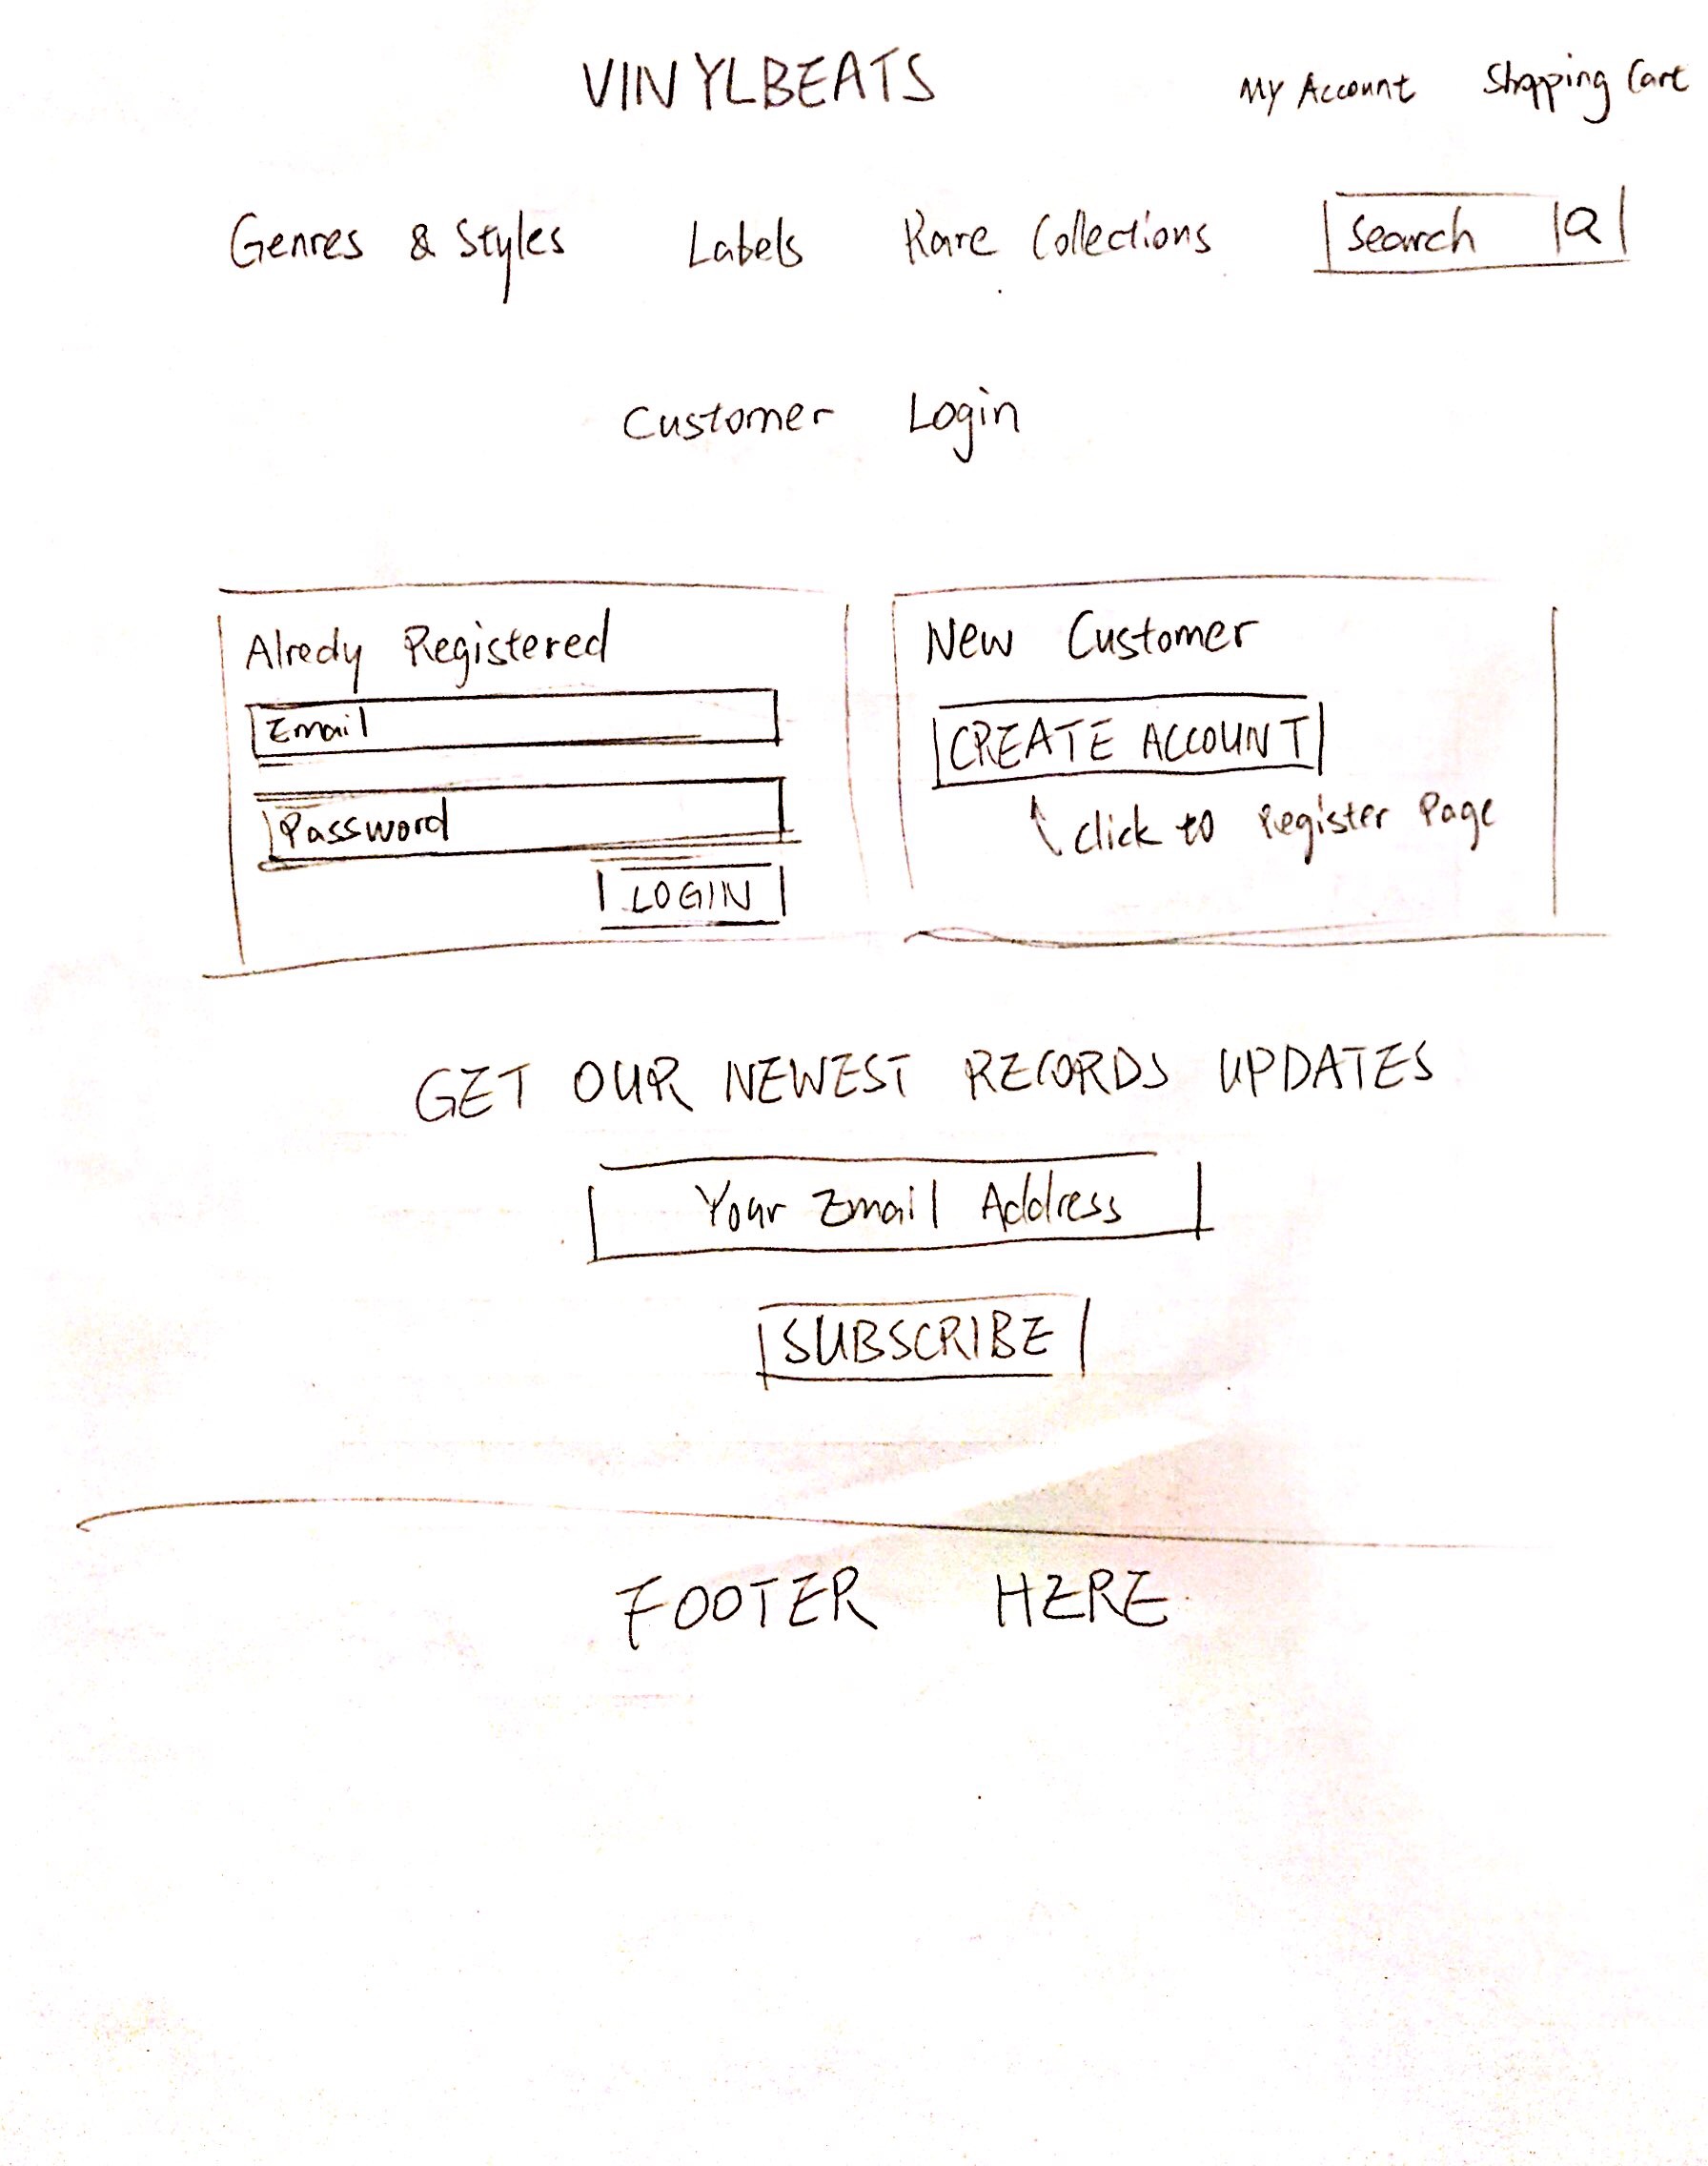 VINYLBEATS
My Account Shopping Cart
Genres & Styles Labels Rare Collections Search
Customer Login
Alredy Registered
Email
Password
LOGIN
New Customer
CREATE ACCOUNT
click to Register Page
GET OUR NEWEST RECORDS UPDATES
Your Email Address
SUBSCRIBE
FOOTER HERE